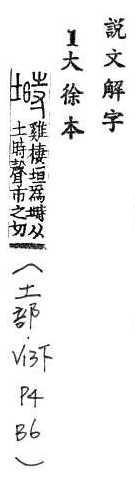 說文解字
1大徐本
塒 雞棲垣爲塒从
土時聲市之切
(土部.V13下
P4
B6)